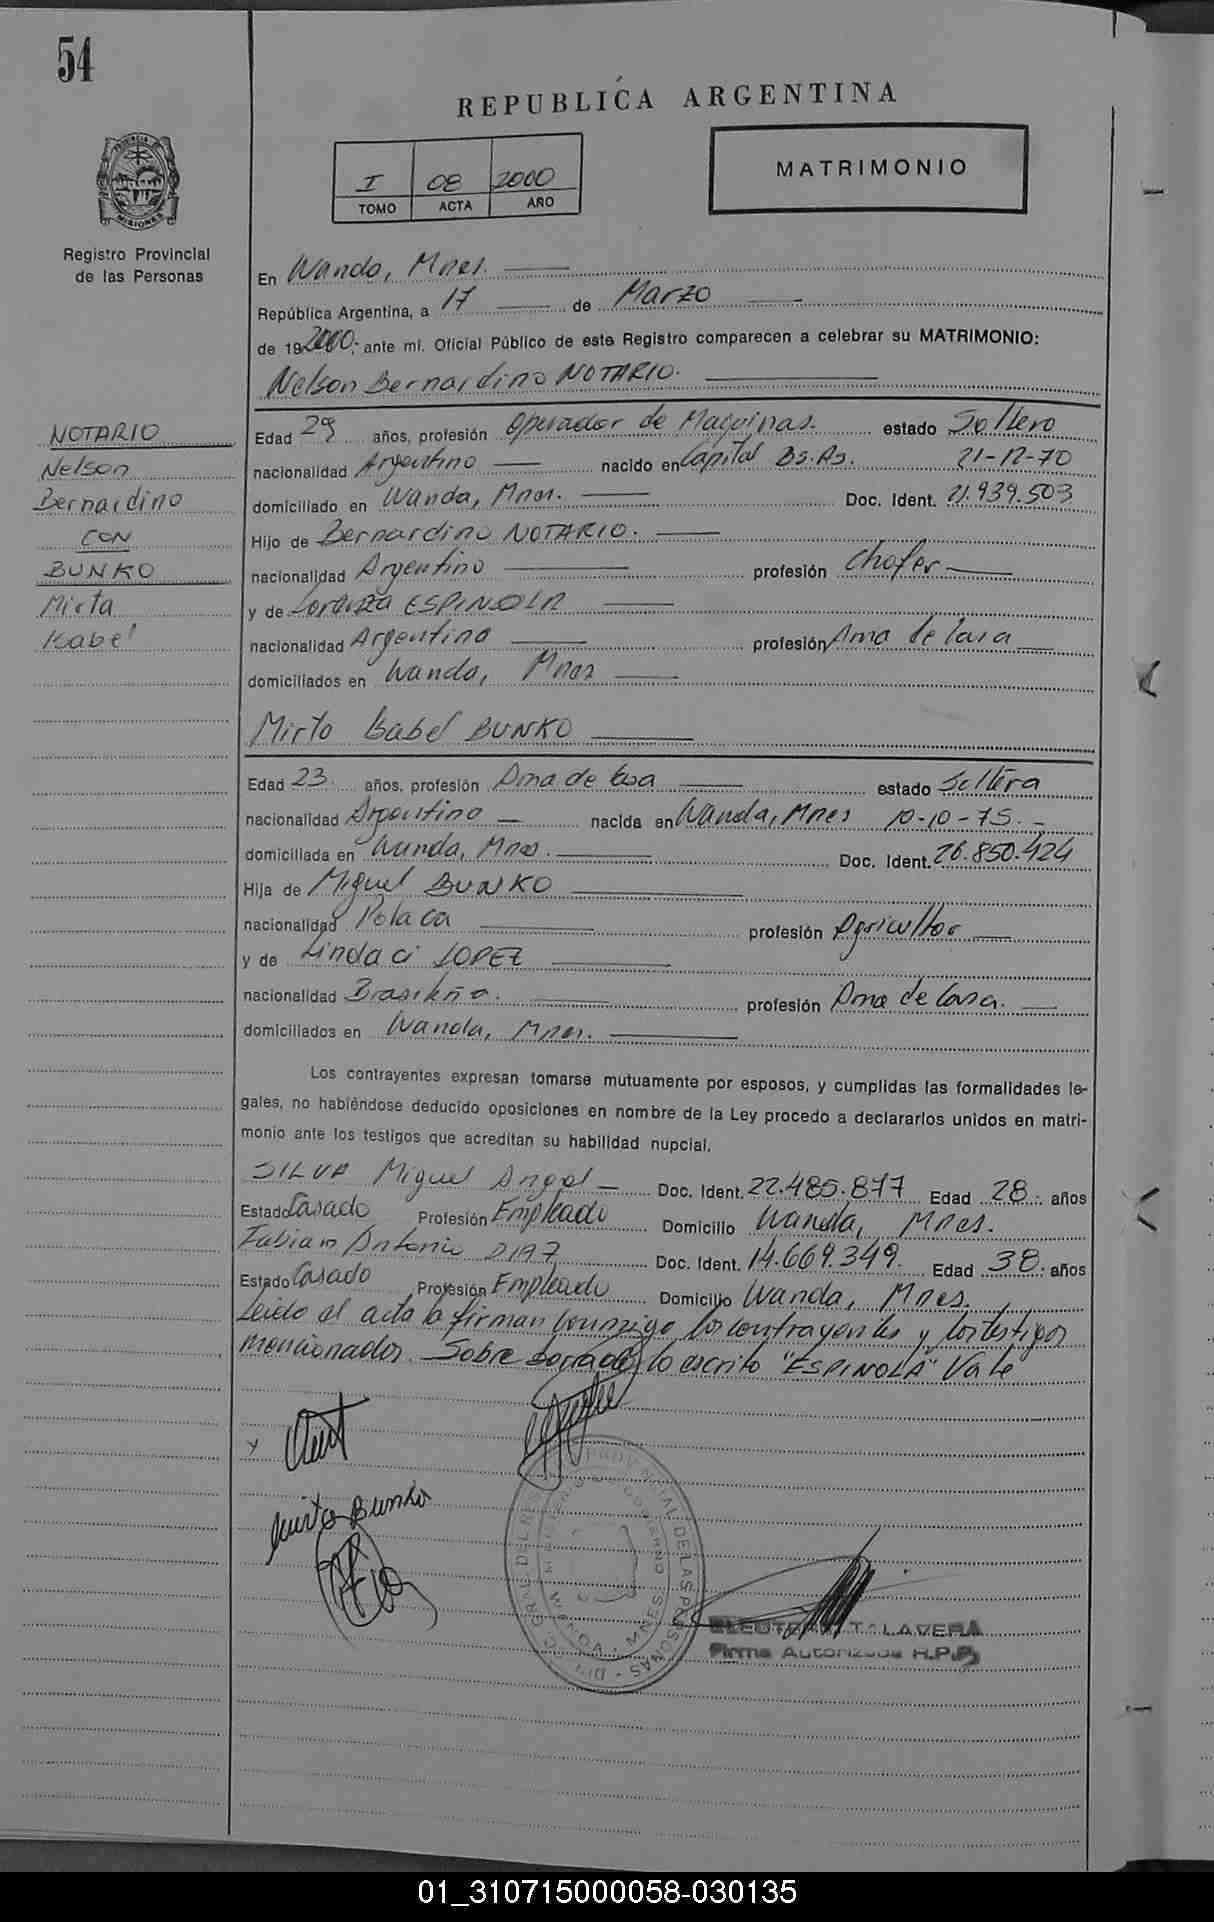 54
REPUBLICA ARGENTINA
I 08 2000
TOMO ACTA AÑO
MATRIMONIO
PROVINCIA DE
MISIONES
Registro Provincial
de las Personas
En Wanda, Mnes.
República Argentina, a 17 de Marzo
de 192000; ante mí. Oficial Público de este Registro comparecen a celebrar su MATRIMONIO:
Nelson Bernardino NOTARIO.
NOTARIO
Nelson
Bernardino
CON
BUNKO
Mirta
Isabel
Edad 29 años, profesión Operador de Maquinas. estado Soltero
nacionalidad Argentino nacido en Capital Bs.As. 21-12-70
domiciliado en Wanda, Mnes. Doc. Ident. 21.939.503
Hijo de Bernardino NOTARIO.
nacionalidad Argentino profesión Chofer
y de Lorenza ESPINOLA
nacionalidad Argentina profesión Ama de Casa
domiciliados en Wanda, Mnes
Mirta Isabel BUNKO
Edad 23. años, profesión Ama de Casa estado Soltera
nacionalidad Argentina nacida en Wanda, Mnes 10-10-75.-
domiciliada en Wanda, Mnes. Doc. Ident. 26.850.424
Hija de Miguel BUNKO
nacionalidad Polaca profesión Agricultor
y de Lindaci LOPEZ
nacionalidad Brasileña. profesión Ama de Casa.
domiciliados en Wanda, Mnes.
Los contrayentes expresan tomarse mutuamente por esposos, y cumplidas las formalidades le-
gales, no habiéndose deducido oposiciones en nombre de la Ley procedo a declararlos unidos en matri-
monio ante los testigos que acreditan su habilidad nupcial.
SILVA Miguel Angel Doc. Ident. 22.485.877 Edad 28. años
Estado Casado Profesión Empleado Domicilio Wanda, Mnes.
Fabian Antonio DIAZ Doc. Ident. 14.669.349. Edad 38. años
Estado Casado Profesión Empleado Domicilio Wanda, Mnes.
Leido el acta la firman conmigo los contrayentes y los testigos
mencionados. Sobre borrado lo escrito "ESPINOLA" Vale
Mirta Bunko
PROVINCIAL DE LAS PERSONAS
WANDA - MNES
TALAVERA
Firma Autorizada R.P.P.
01_310715000058-030135